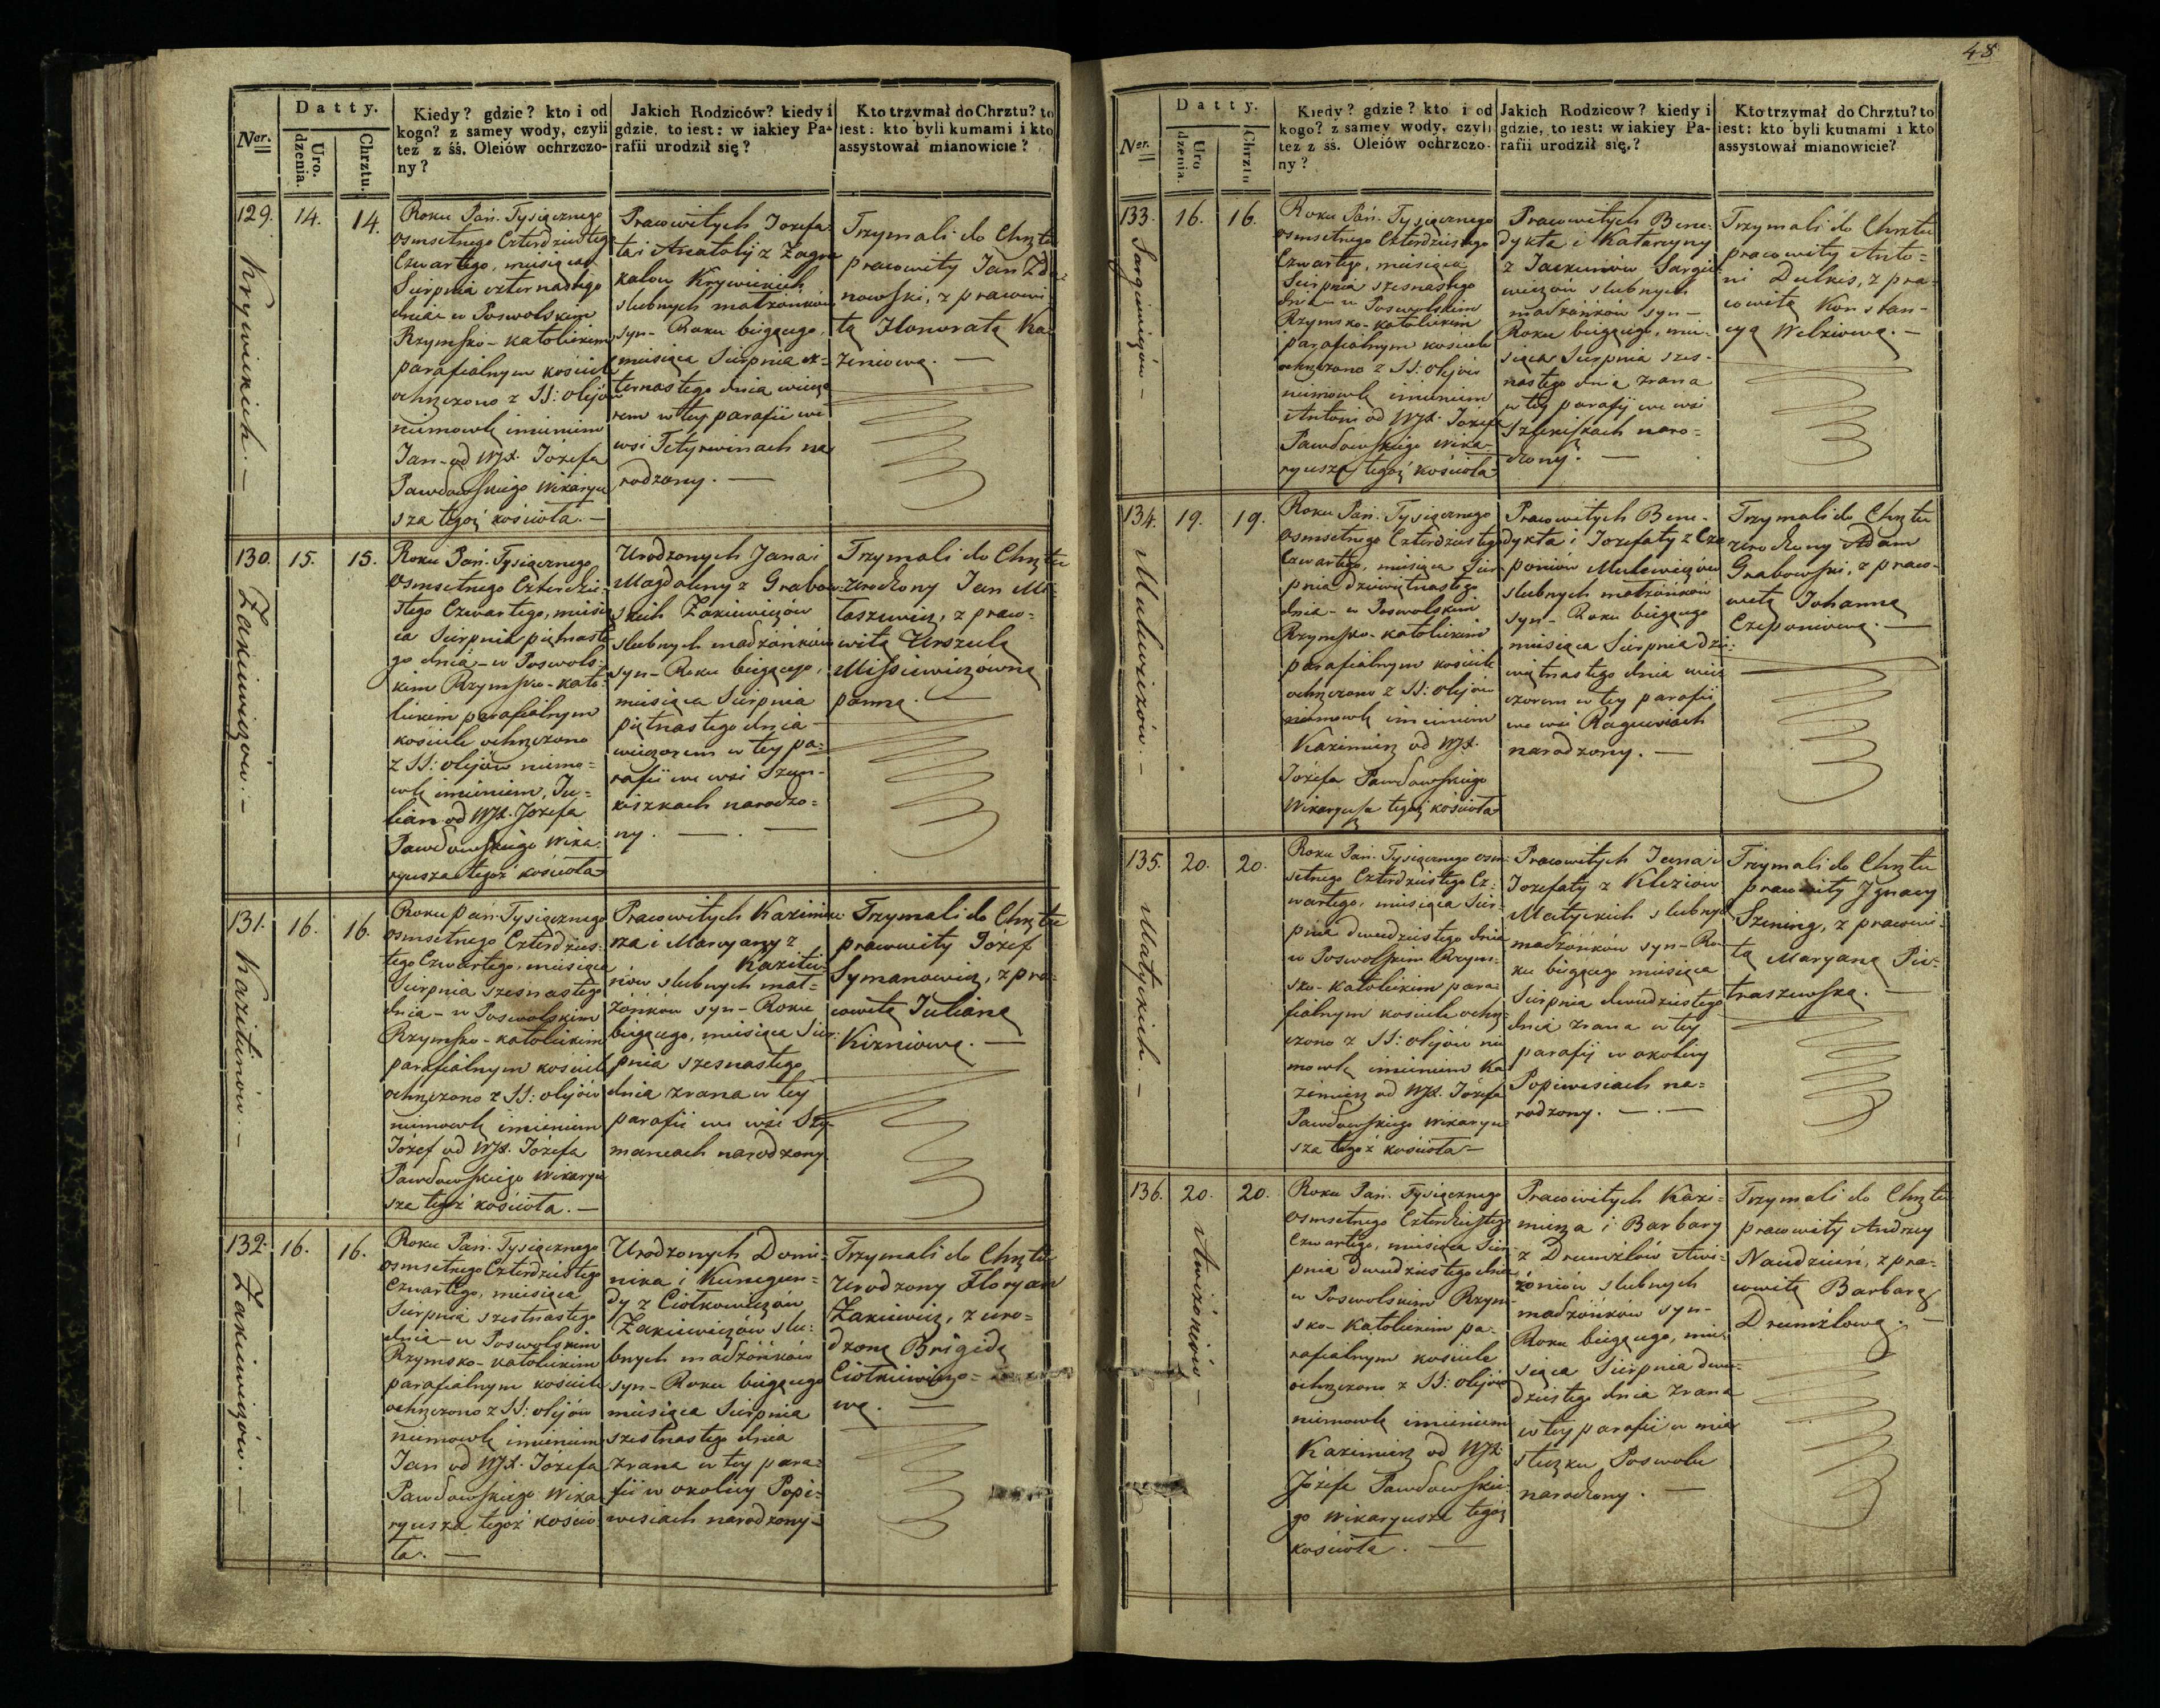 Datty.
Ner.
Uro.
dzenia.
Chrztu.
Kiedy? gdzie? kto i od
kogo? z samey wody, czyli
też z śś. Oleiów ochrzczo-
ny?
Jakich Rodziców? kiedy i
gdzie, to iest: w iakiey Pa-
rafii urodził się?
Kto trzymał do Chrztu? to
iest: kto byli kumami i kto
assystował mianowicie?
129.
Krywickich. —
14.
14.
Roku Pań. Tysiącznego
osmsetnego Czterdziestego
Czwartego, miesiąca
Sierpnia czternastego
dnia - w Poswolskim
Rzymsko-katolickim
parafialnym kościele
ochrzczono z SS: olejów
niemowlę imieniem
Jan - od WJX. Józefa
Pawłowskiego Wikaryu
sza tegoż kościoła. —
Pracowitych Jozefa
ta i Anatolij z Zagra
kalow Krywickich
slubnych małżonków
syn - Roku bieżącego,
miesiąca Sierpnia cz-
ternastego dnia wieczo
rem w tey parafii we
wsi Tetyrwinach na
rodzony. —
Trzymali do Chrztu
pracowity Jan Zda-
nowski, z pracowi
tą Honoratą Ka
zeniową. —
130.
Zakiewiczów. —
15.
15.
Roku Pań. Tysiącznego
osmsetnego Czterdzie-
stego Czwartego, miesią
ca Sierpnia piętnaste
go dnia - w Poswols-
kim Rzymsko-kato-
lickim parafialnym
kościele ochrzczono
z SS: olejów niemo-
wlę imieniem, Ju-
lian od WJX. Jozefa
Pawłowskiego Wika-
ryusza tegoż kościoła
Urodzonych Jana i
Magdaleny z Grabow
skich Zakiewiczów
slubnych małżonków
syn - Roku bieżącego,
miesiąca Sierpnia
piętnastego dnia
wieczorem w tey pa-
rafii we wsi Szun-
kiszkach narodzo-
ny. — . —
Trzymali do Chrztu
urodzony Jan Mi-
taszewicz, z praco-
witą Urszulą
Missiewiczówną
panną. —
131.
Kazitinów. —
16.
16.
Roku Pań. Tysiącznego
osmsetnego Czterdzies-
tego Czwartego, miesiąca
Sierpnia szesnastego
dnia - w Poswolskim
Rzymsko-katolickim
parafialnym kościele
ochrzczono z SS: olejów
niemowlę imieniem
Józef od WJX. Józefa
Pawłowskiego Wikaryu
sza tegoż kościoła. —
Pracowitych Kazimie
rza i Maryany z
Kaziti-
nów slubnych mał-
żonków syn - Roku
bieżącego, miesiąca Sier
pnia szesnastego
dnia zrana w tey
parafii we wsi Szy-
maneach narodzony
Trzymali do Chrztu
pracowity Józef
Symanowicz, z pra-
cowitą Julianą
Kizniową. —
132.
Zakiewiczów. —
16.
16.
Roku Pań. Tysiącznego
osmsetnego Czterdziestego
Czwartego, miesiąca
Sierpnia szestnastego
dnia - w Poswolskim
Rzymsko-katolickim
parafialnym kościele
ochrzczono z SS: olejów
niemowlę imieniem
Jan od WJX. Józefa
Pawłowskiego Wika
ryusza tegoż kościo
ła. —
Urodzonych Domi-
nika i Kunegun-
dy z Ciotkowiczów
Zakiewiczów slu-
bnych małżonków
syn - Roku bieżącego
miesiąca Sierpnia
szestnastego dnia
zrana w tey para-
fii w okolicy Popi-
wesiach narodzony -
Trzymali do Chrztu
urodzony Floryan
Zakiewicz, z uro-
dzoną Brigidą
Ciotkiewiczo-
wą. —
48
Datty.
Ner.
Uro
dzenia.
Chrztu
Kiedy? gdzie? kto i od
kogo? z samey wody, czyli
też z śś. Oleiów ochrzczo-
ny?
Jakich Rodzicow? kiedy i
gdzie, to iest: w iakiey Pa-
rafii urodził się?
Kto trzymał do Chrztu? to
iest: kto byli kumami i kto
assystował mianowicie?
133.
Sargiewiczów —
16.
16.
Roku Pań. Tysiącznego
osmsetnego Czterdziestego
Czwartego, miesiąca
Sierpnia szesnastego
dnia - w Poswolskim
Rzymsko-katolickim
parafialnym kościele
ochrzczono z SS: olejów
niemowlę imieniem
Antoni od WJX. Józefa
Pawłowskiego Wika-
ryusza tegoż kościoła
Pracowitych Bene-
dykta i Katarzyny
z Jackuniów Sargie
wiczów slubnych
małżonków syn -
Roku bieżącego, mie-
siąca Sierpnia szes-
nastego dnia zrana
w tey parafij we wsi
Szlekiszkach naro-
dzony. —
Trzymali do Chrztu
pracowity Anto-
ni Dulkis, z pra-
cowitą Konstan-
cyą Welziową. —
134.
Mulewiczów. —
19.
19.
Roku Pań. Tysiącznego
osmsetnego Czterdziestego
Czwartego, miesiąca Sier-
pnia dziewiętnastego
dnia - w Poswolskim
Rzymsko-katolickim
parafialnym kościele
ochrzczono z SS: olejów
niemowlę imieniem
Kazimierz od WJX.
Józefa Pawłowskiego
Wikaryusza tegoż kościoła
Pracowitych Bene-
dykta i Jozefaty z Cze
poniów Mulewiczów
slubnych małżonków
syn - Roku bieżącego
miesiąca Sierpnia dzie-
więtnastego dnia wie
czorem w tey parafii
we wsi Raguwiach
narodzony. —
Trzymali do Chrztu
urodzony Adam
Grabowski, z praco-
witą Johanną
Czeponiową. —
135.
Matyckich. —
20.
20.
Roku Pań. Tysiącznego osm-
setnego Czterdziestego Cz-
wartego, miesiąca Sier-
pnia dwudziestego dnia
w Poswolskim Rzym-
sko-katolickim para-
fialnym kościele ochrz-
czono z SS: olejów nie
mowlę imieniem Ka
zimierz od WJX. Józefa
Pawłowskiego Wikaryu
sza tegoż kościoła —
Pracowitych Jana i
Jozefaty z Kleziow
Matyckich slubnych
małżonków syn - Ro-
ku bieżącego miesiąca
Sierpnia dwudziestego
dnia zrana w tey
parafij w okolicy
Popiwesiach na-
rodzony. — . —
Trzymali do Chrztu
pracowity Ignacy
Szening, z pracowi-
tą Maryaną Pie-
traszewską. —
136.
Awiżoniów —
20.
20.
Roku Pań. Tysiącznego
osmsetnego Czterdziestego
Czwartego, miesiąca Sier
pnia dwudziestego dnia
w Poswolskim Rzym-
sko-Katolickim pa-
rafialnym kościele
ochrzczono z SS: olejów
niemowlę imieniem
Kazimierz od WJX
Józefa Pawłowskie-
go Wikaryusza tegoż
kościoła. —
Pracowitych Kazi-
mierza i Barbary
z Drumżlów Awi-
żoniów slubnych
małżonków syn -
Roku bieżącego, mie
siąca Sierpnia dwu-
dziestego dnia zrana
w tey parafii w mia
steczku Poswolu
narodzony. —
Trzymali do Chrztu
pracowity Andrzey
Naudziun, z pra-
cowitą Barbarą
Drumżlową. —